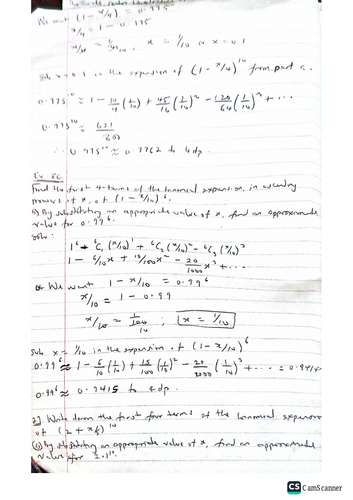 We want (1 - x/4) = 0.975
x/4 = 1 - 0.975
x/4 = 1/40, x = 1/10 or x = 0.1
Sub x = 0.1 in the expansion of (1 - x/4)^10 from part a.
0.975^10 ≈ 1 - 10/4 (1/10) + 45/16 (1/10)^2 - 120/64 (1/10)^3 + ...
0.975^10 ≈
∴ 0.975^10 ≈ 0.7762 to 4 dp.
Ex 8C
Find the first 4-terms of the binomial expansion, in ascending
powers of x, of (1 - x/10)^6.
b) By substituting an appropriate value of x, find an approximate
value for 0.99^6.
Soln:
1^6 - 6C1 (x/10)^1 + 6C2 (x/10)^2 - 6C3 (x/10)^3
1 - 6/10 x + 15/100 x^2 - 20/1000 x^3 + ...
We want 1 - x/10 = 0.99^6
x/10 = 1 - 0.99
x/10 = 1/100 ; x = 1/10
Sub x = 1/10 in the expansion of (1 - x/10)^6
0.99^6 ≈ 1 - 6/10 (1/10) + 15/100 (1/10)^2 - 20/1000 (1/10)^3 + ...
0.99^6 ≈ 0.9415 to 4 dp.
2] Write down the first four terms of the binomial expansion
of (2 + x/5)^10
(b) By substituting an appropriate value of x, find an approximate
value for 2.1^10.
CS CamScanner